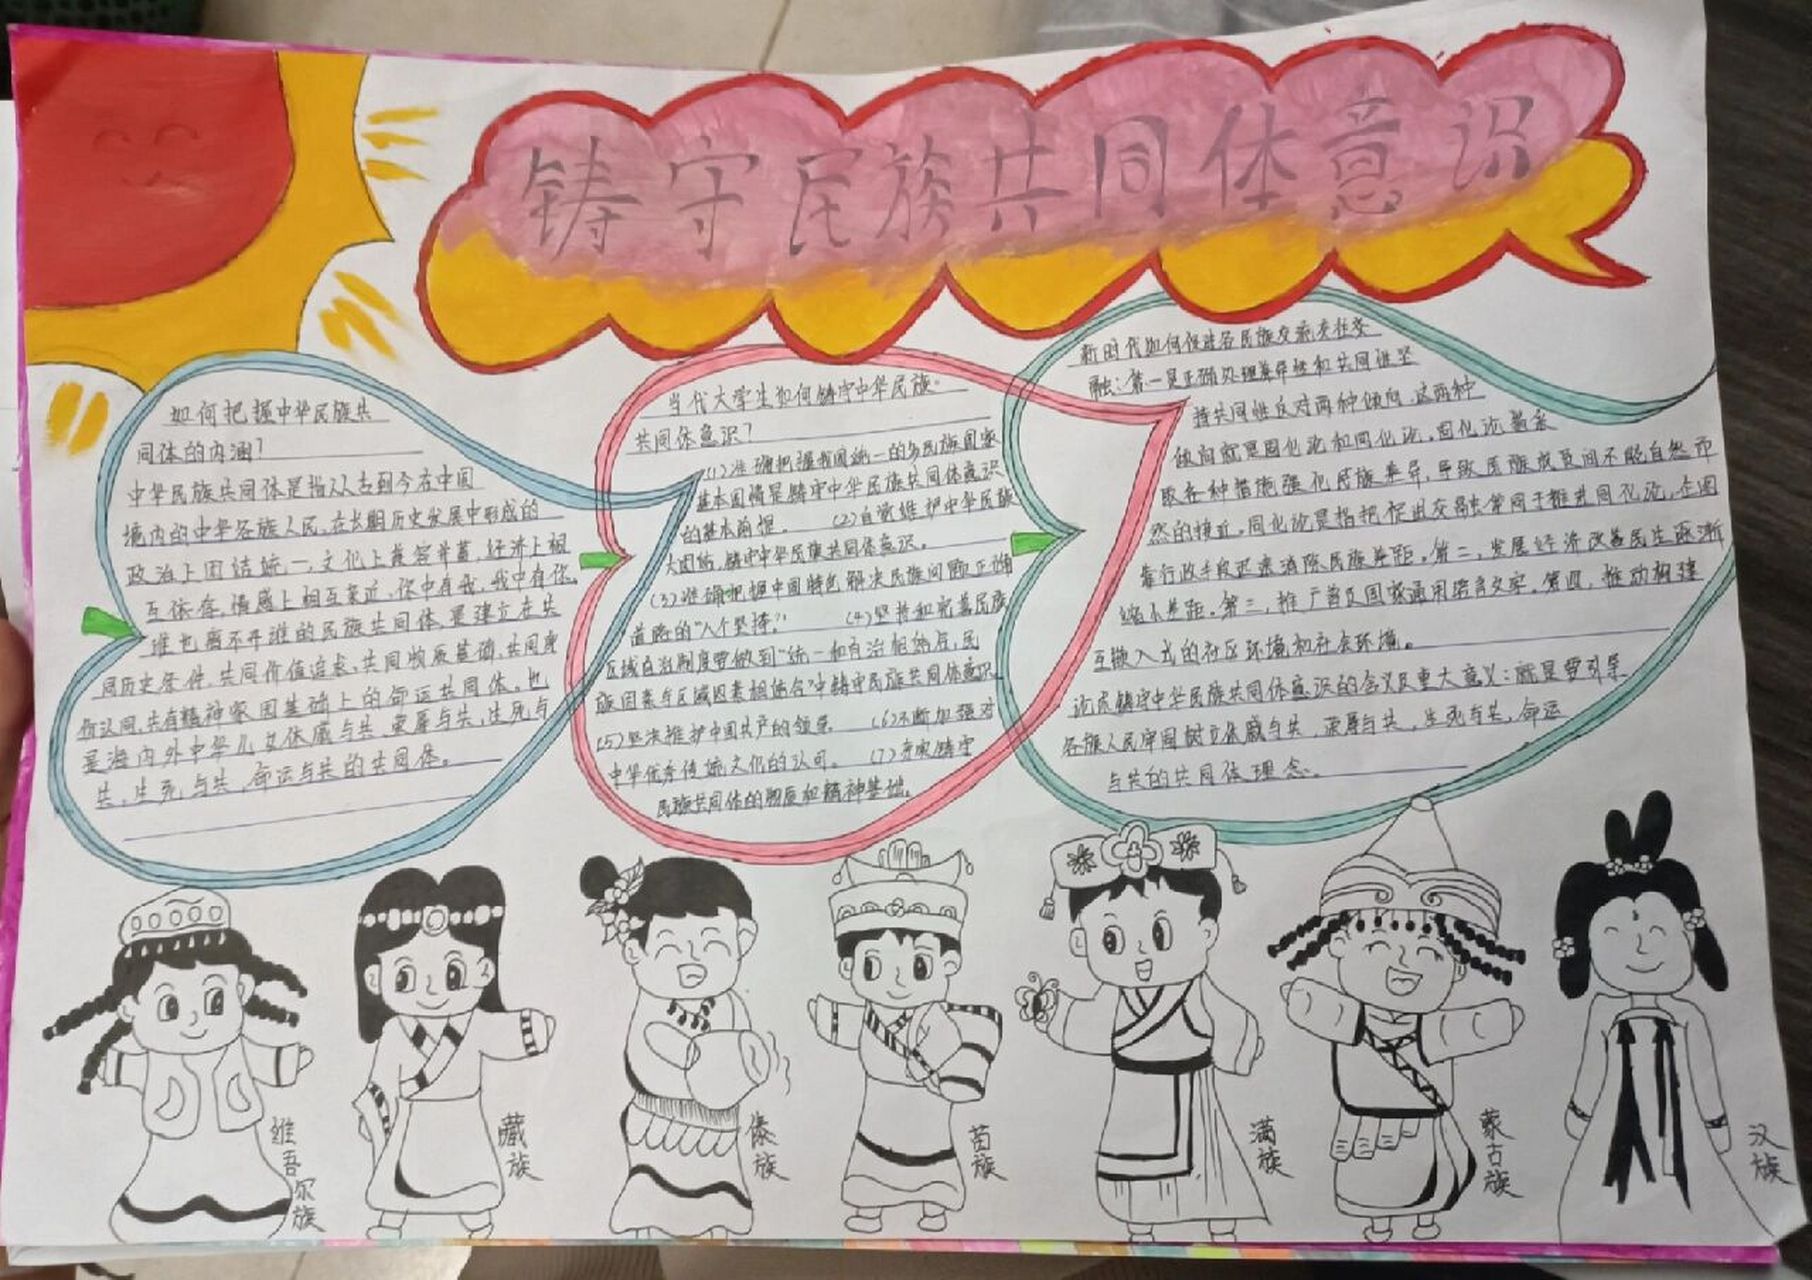 铸守民族共同体意识
如何把握中华民族共
同体的内涵?
中华民族共同体是指从古到今在中国
境内的中华各族人民,在长期历史发展中形成的
政治上团结统一,文化上兼容并蓄,经济上相
互依存,情感上相互亲近,你中有我,我中有你,
谁也离不开谁的民族共同体,是建立在共
同历史条件,共同价值追求,共同物质基础,共同身
份认同,共有精神家园基础上的命运共同体。也
是海内外中华儿女休戚与共,荣辱与共,生死与
共,生死与共,命运与共的共同体。
当代大学生如何铸守中华民族
共同体意识?
(1)准确把握我国统一的多民族国家
基本国情是铸守中华民族共同体意识
的基本前提。 (2)自觉维护中华民族
大团结,铸守中华民族共同体意识。
(3)准确把握中国特色解决民族问题正确
道路的"八个坚持" (4)坚持和完善民族
区域自治制度要做到"统一和自治相结合,民
族因素与区域因素相结合"中铸守民族共同体意识
(5)坚决维护中国共产的领导 (6)不断加强对
中华优秀传统文化的认同。 (7)夯实铸守
民族共同体的物质和精神基础。
新时代如何促进各民族交流交往交
融:第一是正确处理差异性和共同性坚
持共同性反对两种倾向,这两种
倾向就是固化论和同化论,固化论是采
取各种措施强化民族差异,导致民族成员间不能自然而
然的接近,同化论是指把促进交融等同于推进同化论,企图
靠行政手段迅速消除民族差距。第二,发展经济改善民生逐渐
缩小差距。第三,推广普及国家通用语言文字。第四,推动构建
互嵌入式的社区环境和社会环境。
论述铸守中华民族共同体意识的含义及重大意义:就是要引导
各族人民牢固树立休戚与共,荣辱与共,生死与共,命运
与共的共同体理念。
维吾尔族
藏族
傣族
苗族
满族
蒙古族
汉族